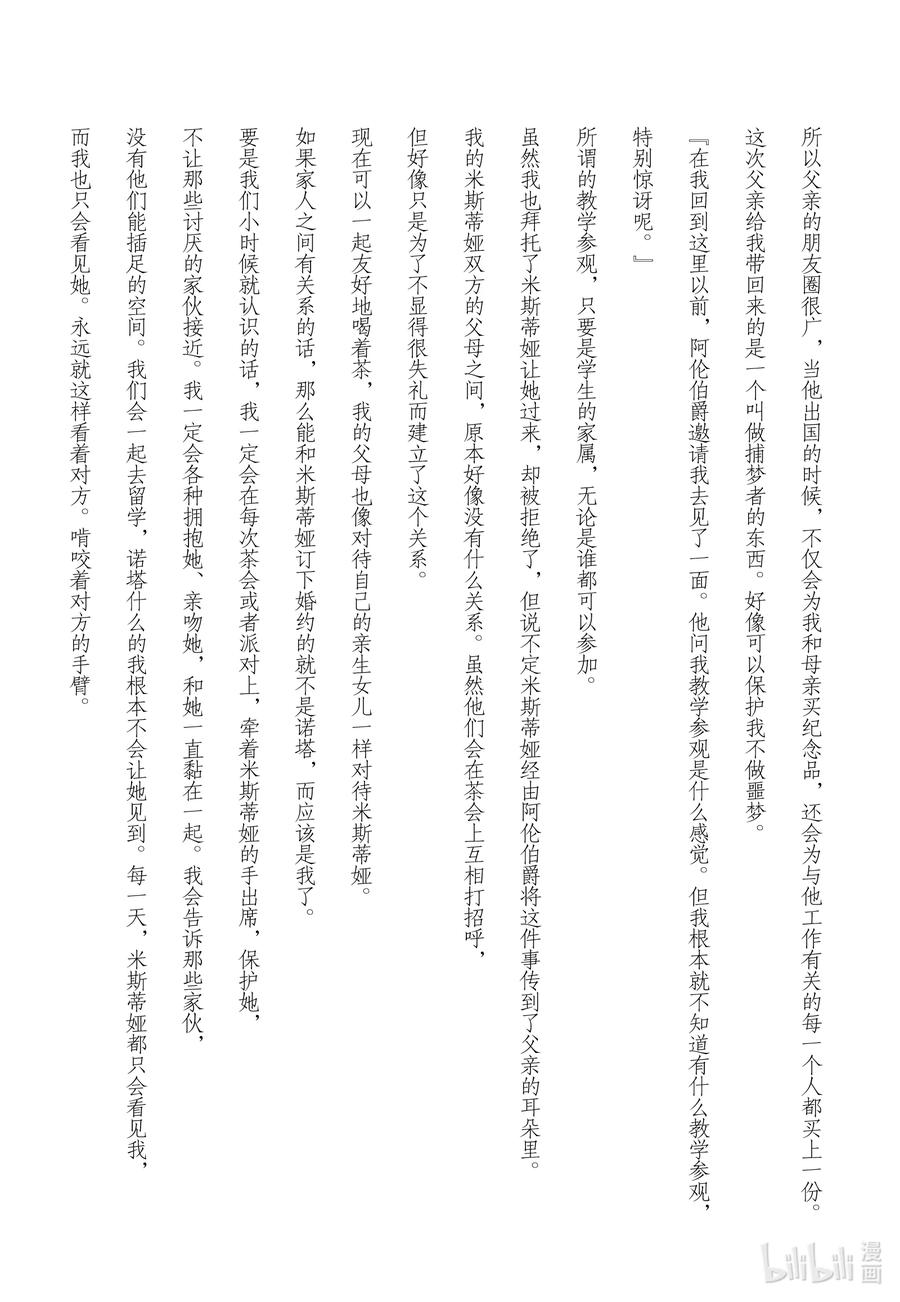 所以父亲的朋友圈很广，当他出国的时候，不仅会为我和母亲买纪念品，还会为与他工作有关的每一个人都买上一份。
这次父亲给我带回来的是一个叫做捕梦者的东西。好像可以保护我不做噩梦。
『在我回到这里以前，阿伦伯爵邀请我去见了一面。他问我教学参观是什么感觉。但我根本就不知道有什么教学参观，
特别惊讶呢。』
所谓的教学参观，只要是学生的家属，无论是谁都可以参加。
虽然我也拜托了米斯蒂娅让她过来，却被拒绝了，但说不定米斯蒂娅经由阿伦伯爵将这件事传到了父亲的耳朵里。
我的米斯蒂娅双方的父母之间，原本好像没有什么关系。虽然他们会在茶会上互相打招呼，
但好像只是为了不显得很失礼而建立了这个关系。
现在可以一起友好地喝着茶，我的父母也像对待自己的亲生女儿一样对待米斯蒂娅。
如果家人之间有关系的话，那么能和米斯蒂娅订下婚约的就不是诺塔，而应该是我了。
要是我们小时候就认识的话，我一定会在每次茶会或者派对上，牵着米斯蒂娅的手出席，保护她，
不让那些讨厌的家伙接近。我一定会各种拥抱她、亲吻她，和她一直黏在一起。我会告诉那些家伙，
没有他们能插足的空间。我们会一起去留学，诺塔什么的我根本不会让她见到。每一天，米斯蒂娅都只会看见我，
而我也只会看见她。永远就这样看着对方。啃咬着对方的手臂。
bilibili 漫画